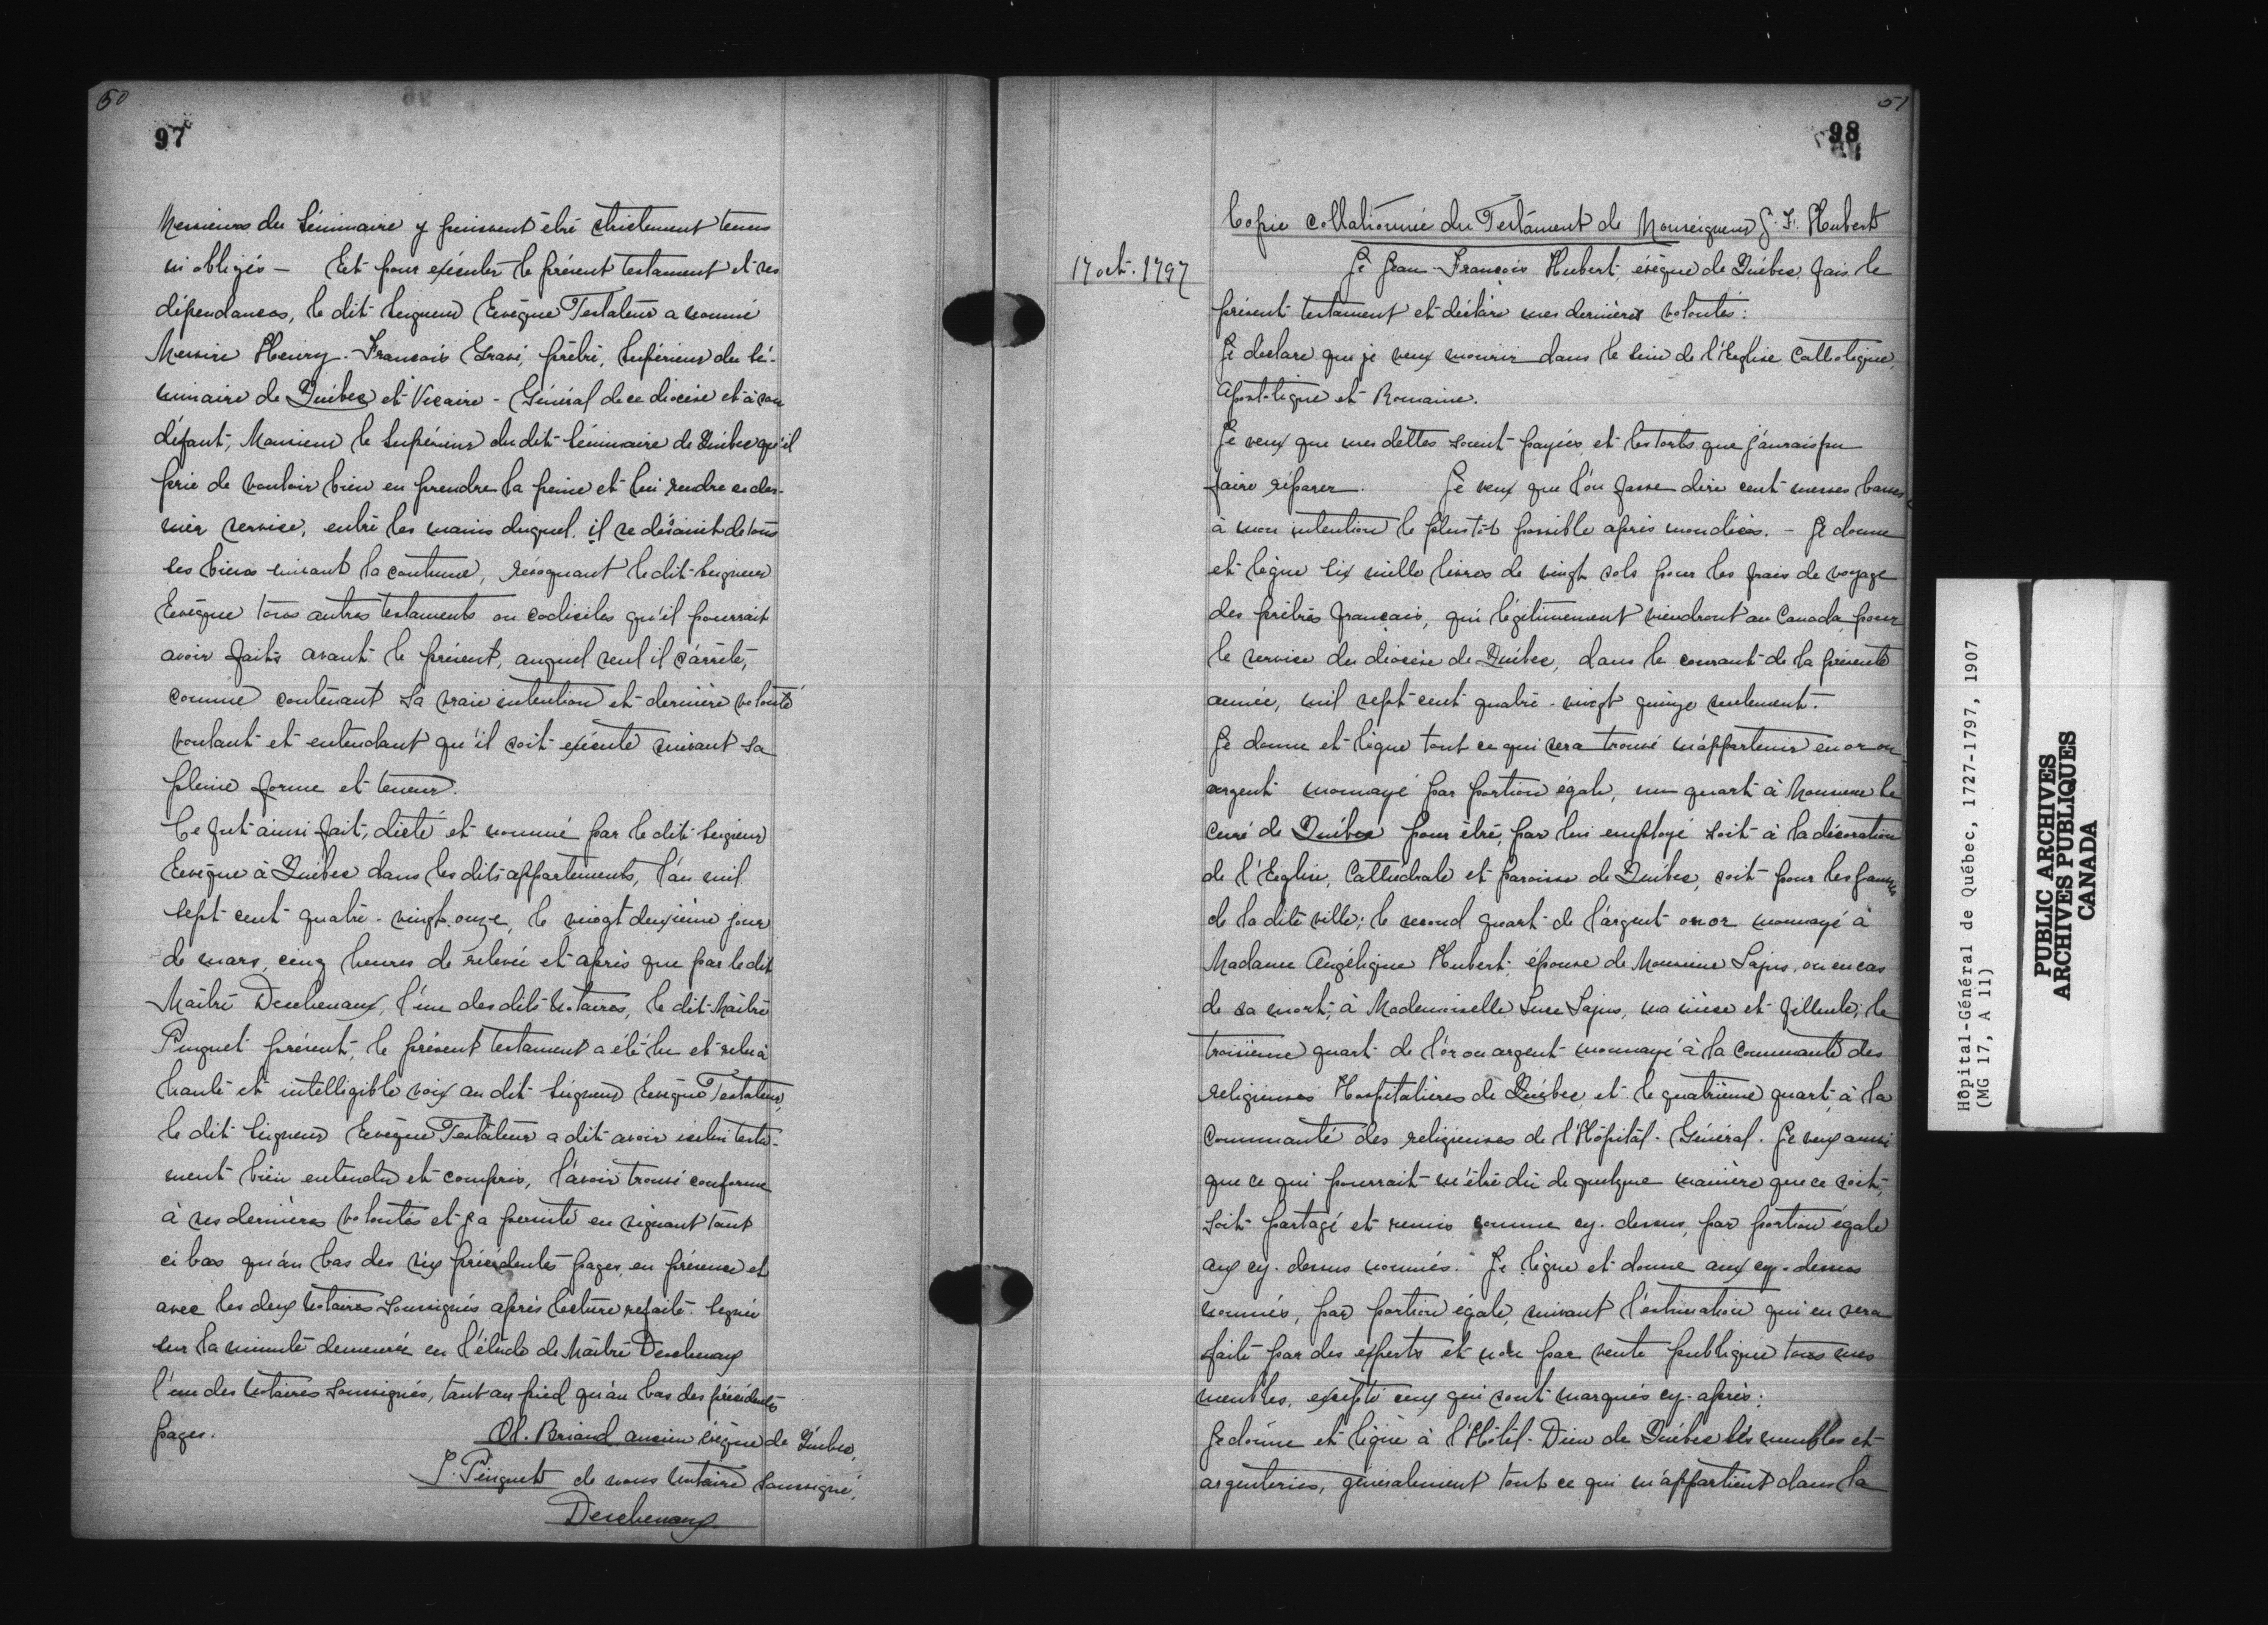 50
97
Messieurs du Séminaire y puissent être strictement tenus
ni obligés — Et pour exécuter le présent testament et ses
dépendances, le dit Seigneur Evêque Testateur a nommé
Messire Henry-François Gravé, prêtre, Supérieur du Sé-
minaire de Québec et Vicaire-Général de ce diocèse et à son
défaut, Monsieur le Supérieur du dit Séminaire de Québec qu'il
prie de vouloir bien en prendre la peine et lui rendre ce der-
nier service, entre les mains duquel, il se désaisit de tous
ses biens suivant la coutume, révoquant le dit Seigneur
Evêque tous autres testaments ou codiciles qu'il pourrait
avoir faits avant le présent, auquel seul il s'arrête,
comme contenant sa vraie intention et dernière volonté
voulant et entendant qu'il soit exécuté suivant sa
pleine forme et teneur.
Ce fut ainsi fait, dicté et nommé par le dit Seigneur
Evêque à Québec dans les dits appartements, l'an mil
sept-cent-quatre-vingt-onze, le vingt deuxième jour
de mars, cinq heures de relevée et après que par le dit
Maître Deschenaux, l'un des dits Notaires, le dit Maître
Pinguet présent, le présent testament a été lu et relu à
haute et intelligible voix au dit Seigneur Evêque Testateur,
le dit Seigneur Evêque Testateur a dit avoir icelui testa-
ment bien entendu et compris, l'avoir trouvé conforme
à ses dernières volontés et y a persisté en signant tant
ci bas qu'au bas des six précédentes pages, en présence et
avec les deux Notaires Soussignés après lecture refaite. Signée
sur la minute demeurée en l'étude de Maître Deschenaux
l'un des Notaires Soussignés, tant au pied qu'au bas des précédentes
pages.
Ol. Briand ancien évêque de Québec,
J. Pinguet de nous Notaire Soussigné,
Deschenaux
51
98
Copie collationnée du Testament de Monseigneur J. F. Hubert
17 oct. 1797
Je Jean-François Hubert, évêque de Québec, fais le
présent testament et déclare mes dernières volontés:
Je declare que je veux mourir dans le sein de l'Eglise Catholique,
Apostolique et Romaine.
Je veux que mes dettes soient payées et les torts que j'aurais pu
faire réparer. Je veux que l'on fasse dire cent messes basses
à mon intention le plustôt possible après mon décès. — Je donne
et lègue six mille livres de vingt sols pour les frais de voyage
des prêtres français, qui légitimement viendront au Canada, pour
le service du diocèse de Québec, dans le courant de la présente
année, mil sept cent quatre-vingt quinze seulement.
Je donne et lègue tout ce qui sera trouvé m'appartenir en or ou
argent monnayé par portion égale, un quart à Monsieur le
Curé de Québec pour être, par lui employé soit à la décoration
de l'Eglise, Cathédrale et paroisse de Québec, soit pour les pauvres
de la dite ville; le second quart de l'argent ou or monnayé à
Madame Angélique Hubert, épouse de Monsieur Lajus, ou en cas
de sa mort, à Mademoiselle Luce Lajus, ma nièce et filleule, le
troisième quart de l'or ou argent monnayé à la Communauté des
religieuses Hospitalières de Québec et le quatrième quart à la
Communauté des religieuses de l'Hôpital-Général. Je veux aussi
que ce qui pourrait m'être dû de quelque manière que ce soit,
soit partagé et remis comme cy-dessus, par portion égale
aux cy-dessus nommés. Je lègue et donne aux cy-dessus
nommés, par portion égale, suivant l'estimation qui en sera
faite par des experts et non par vente publique tous mes
meubles, excepté ceux qui sont marqués cy-après:
Je donne et lègue à l'Hôtel-Dieu de Québec les meubles et
argenteries, généralement tout ce qui m'appartient dans la
Hôpital-Général de Québec, 1727-1797, 1907
(MG 17, A 11)
PUBLIC ARCHIVES
ARCHIVES PUBLIQUES
CANADA